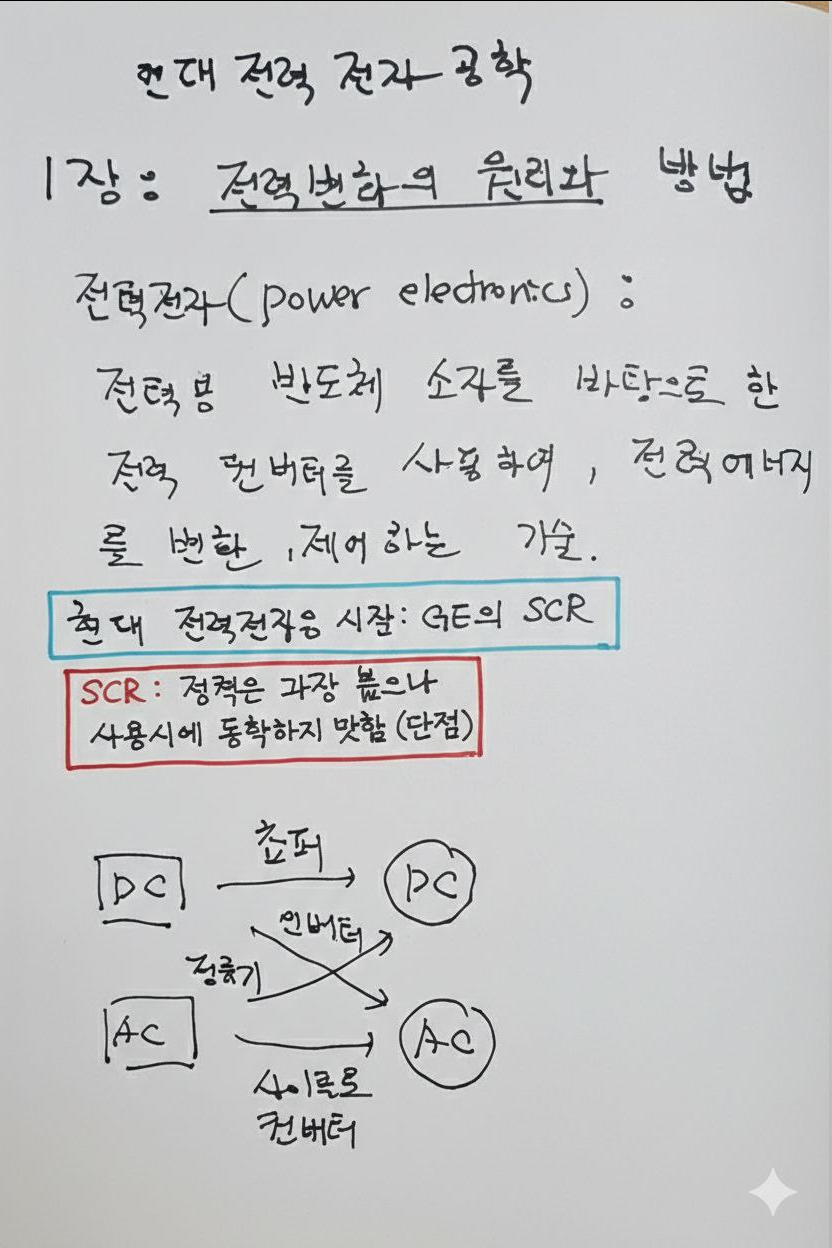 현대 전력 전자 공학
1장: 전력변화의 원리와 방법
전력전자(power electronics):
전력용 반도체 소자를 바탕으로 한
전력 컨버터를 사용하여, 전력에너지
를 변환, 제어하는 기술.
현대 전력전자응 시잘: GE의 SCR
SCR: 정격은 과장 높으나
사용시에 동학하지 맛함 (단점)
쵸퍼
DC DC
인버터
정류기
AC AC
사이클로
컨버터